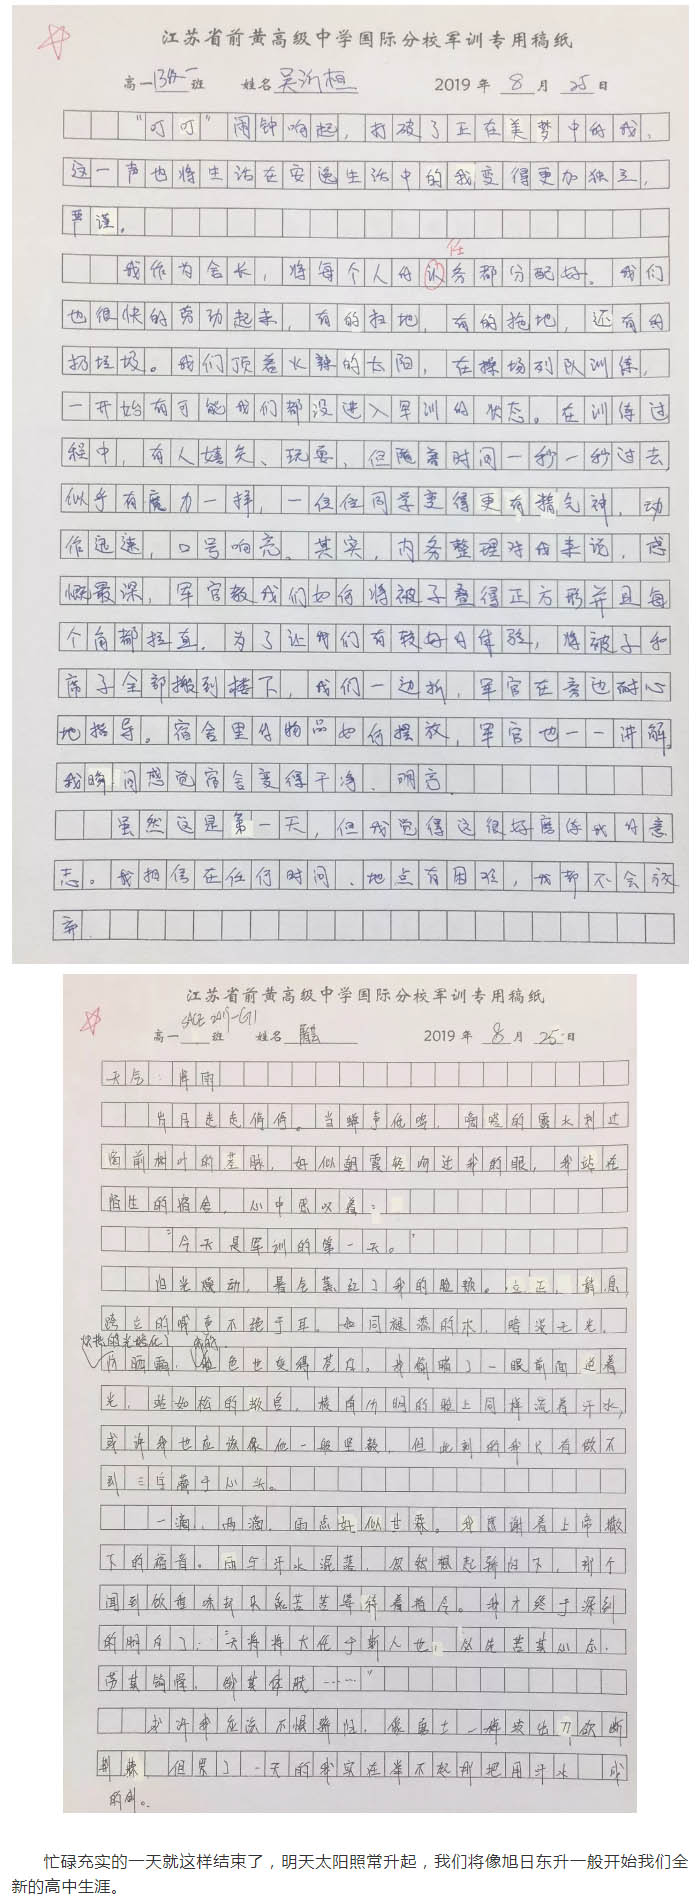 江苏省前黄高级中学国际分校军训专用稿纸
高一 班 姓名 吴沂桓 2019年 8 月 25 日
“叮叮”闹钟响起，打破了正在美梦中的我，
这一声也将生活在安逸生活中的我变得更加独立，
严谨。
任
我作为舍长，将每个人的认务都分配好。我们
也很快的劳动起来，有的扫地，有的拖地，还有的
扔垃圾。我们顶着火辣的太阳，在操场列队训练，
一开始有可能我们都没进入军训的状态。在训练过
程中，有人嬉笑、玩耍，但随着时间一秒一秒过去
似乎有魔力一样，一位位同学变得更有精气神，动
作迅速，口号响亮。其实，内务整理对我来说，感
慨最深，军官教我们如何将被子叠得正方形并且每
个角都拉直，为了让我们有较好的体验，将被子和
席子全部搬到楼下，我们一边折，军官在旁边耐心
地指导。宿舍里的物品如何摆放，军官也一一讲解。
我瞬间感觉宿舍变得干净、明亮
虽然这是第一天，但我觉得这很好磨练我的意
志。我相信在任何时间、地点有困难，我都不会放
弃
江苏省前黄高级中学国际分校军训专用稿纸
SACE 2019-G11
高一 班 姓名 2019年 8 月 25 日
天气：阵雨
岁月走走停停。当蝉声低鸣，嘀嗒的露水划过
窗前树叶的茎脉，好似朝霞轻吻过我的眼，我站在
陌生的宿舍，心中思叹着：
“今天是军训的第一天。”
阳光缓动，暑气蒸红了我的脸颊。立正，稍息，
跨立的喊声不绝于耳。如同褪漆的木，暗淡无光，
所晒露，色也变得苍白。我偷瞄了一眼前面迎着
光，站如松的教官，棱角分明的脸上同样流着汗水，
或许我也应该像他一般坚毅，但此刻的我只有做不
到三字藏于心头。
一滴，两滴，雨点好似甘霖。我感谢着上帝撒
下的福音。雨与汗水混落，忽然想起骄阳下，那个
闻到饭香味却只能苦苦等待着指令。我才终于深刻
的明白了：“天将将大任于斯人也，必先苦其心志，
劳其筋骨，饿其体肤……”
或许我应该不惧骄阳，像勇士一样拔出刀砍断
荆棘，但累了一天的我实在举不起那把用汗水 成
的剑。
忙碌充实的一天就这样结束了，明天太阳照常升起，我们将像旭日东升一般开始我们全
新的高中生涯。